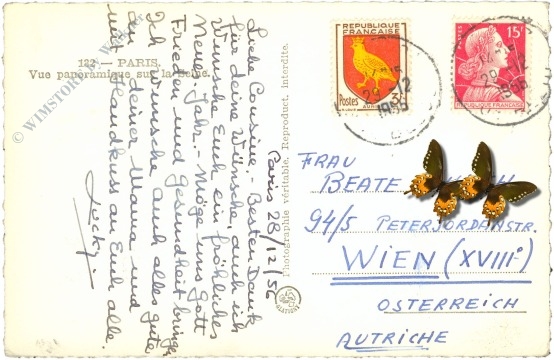 © WIMSTORE
122 — PARIS.
Vue panoramique sur la Seine.
Paris 28/12/56
Liebe Cousine. - Besten Dank
für deine Wünsche, auch ich
Wünsche Euch ein fröhliches
Neues Jahr. - Möge uns Gott
Frieden und Gesundheit bringen
Ich wünsche auch alles gute
an deiner Mama und
mit Handkuss an Euch alle.
Photographie véritable. Reproduct. Interdite.
REPUBLIQUE
FRANÇAISE
Postes
3F
AUNIS
POSTES
15F
REPUBLIQUE FRANÇAISE
29-12
1956
29-12
1956
FRAU
BEATE
94/5 PETERJORDANSTR.
WIEN (XVIIIe)
OSTERREICH
AUTRICHE